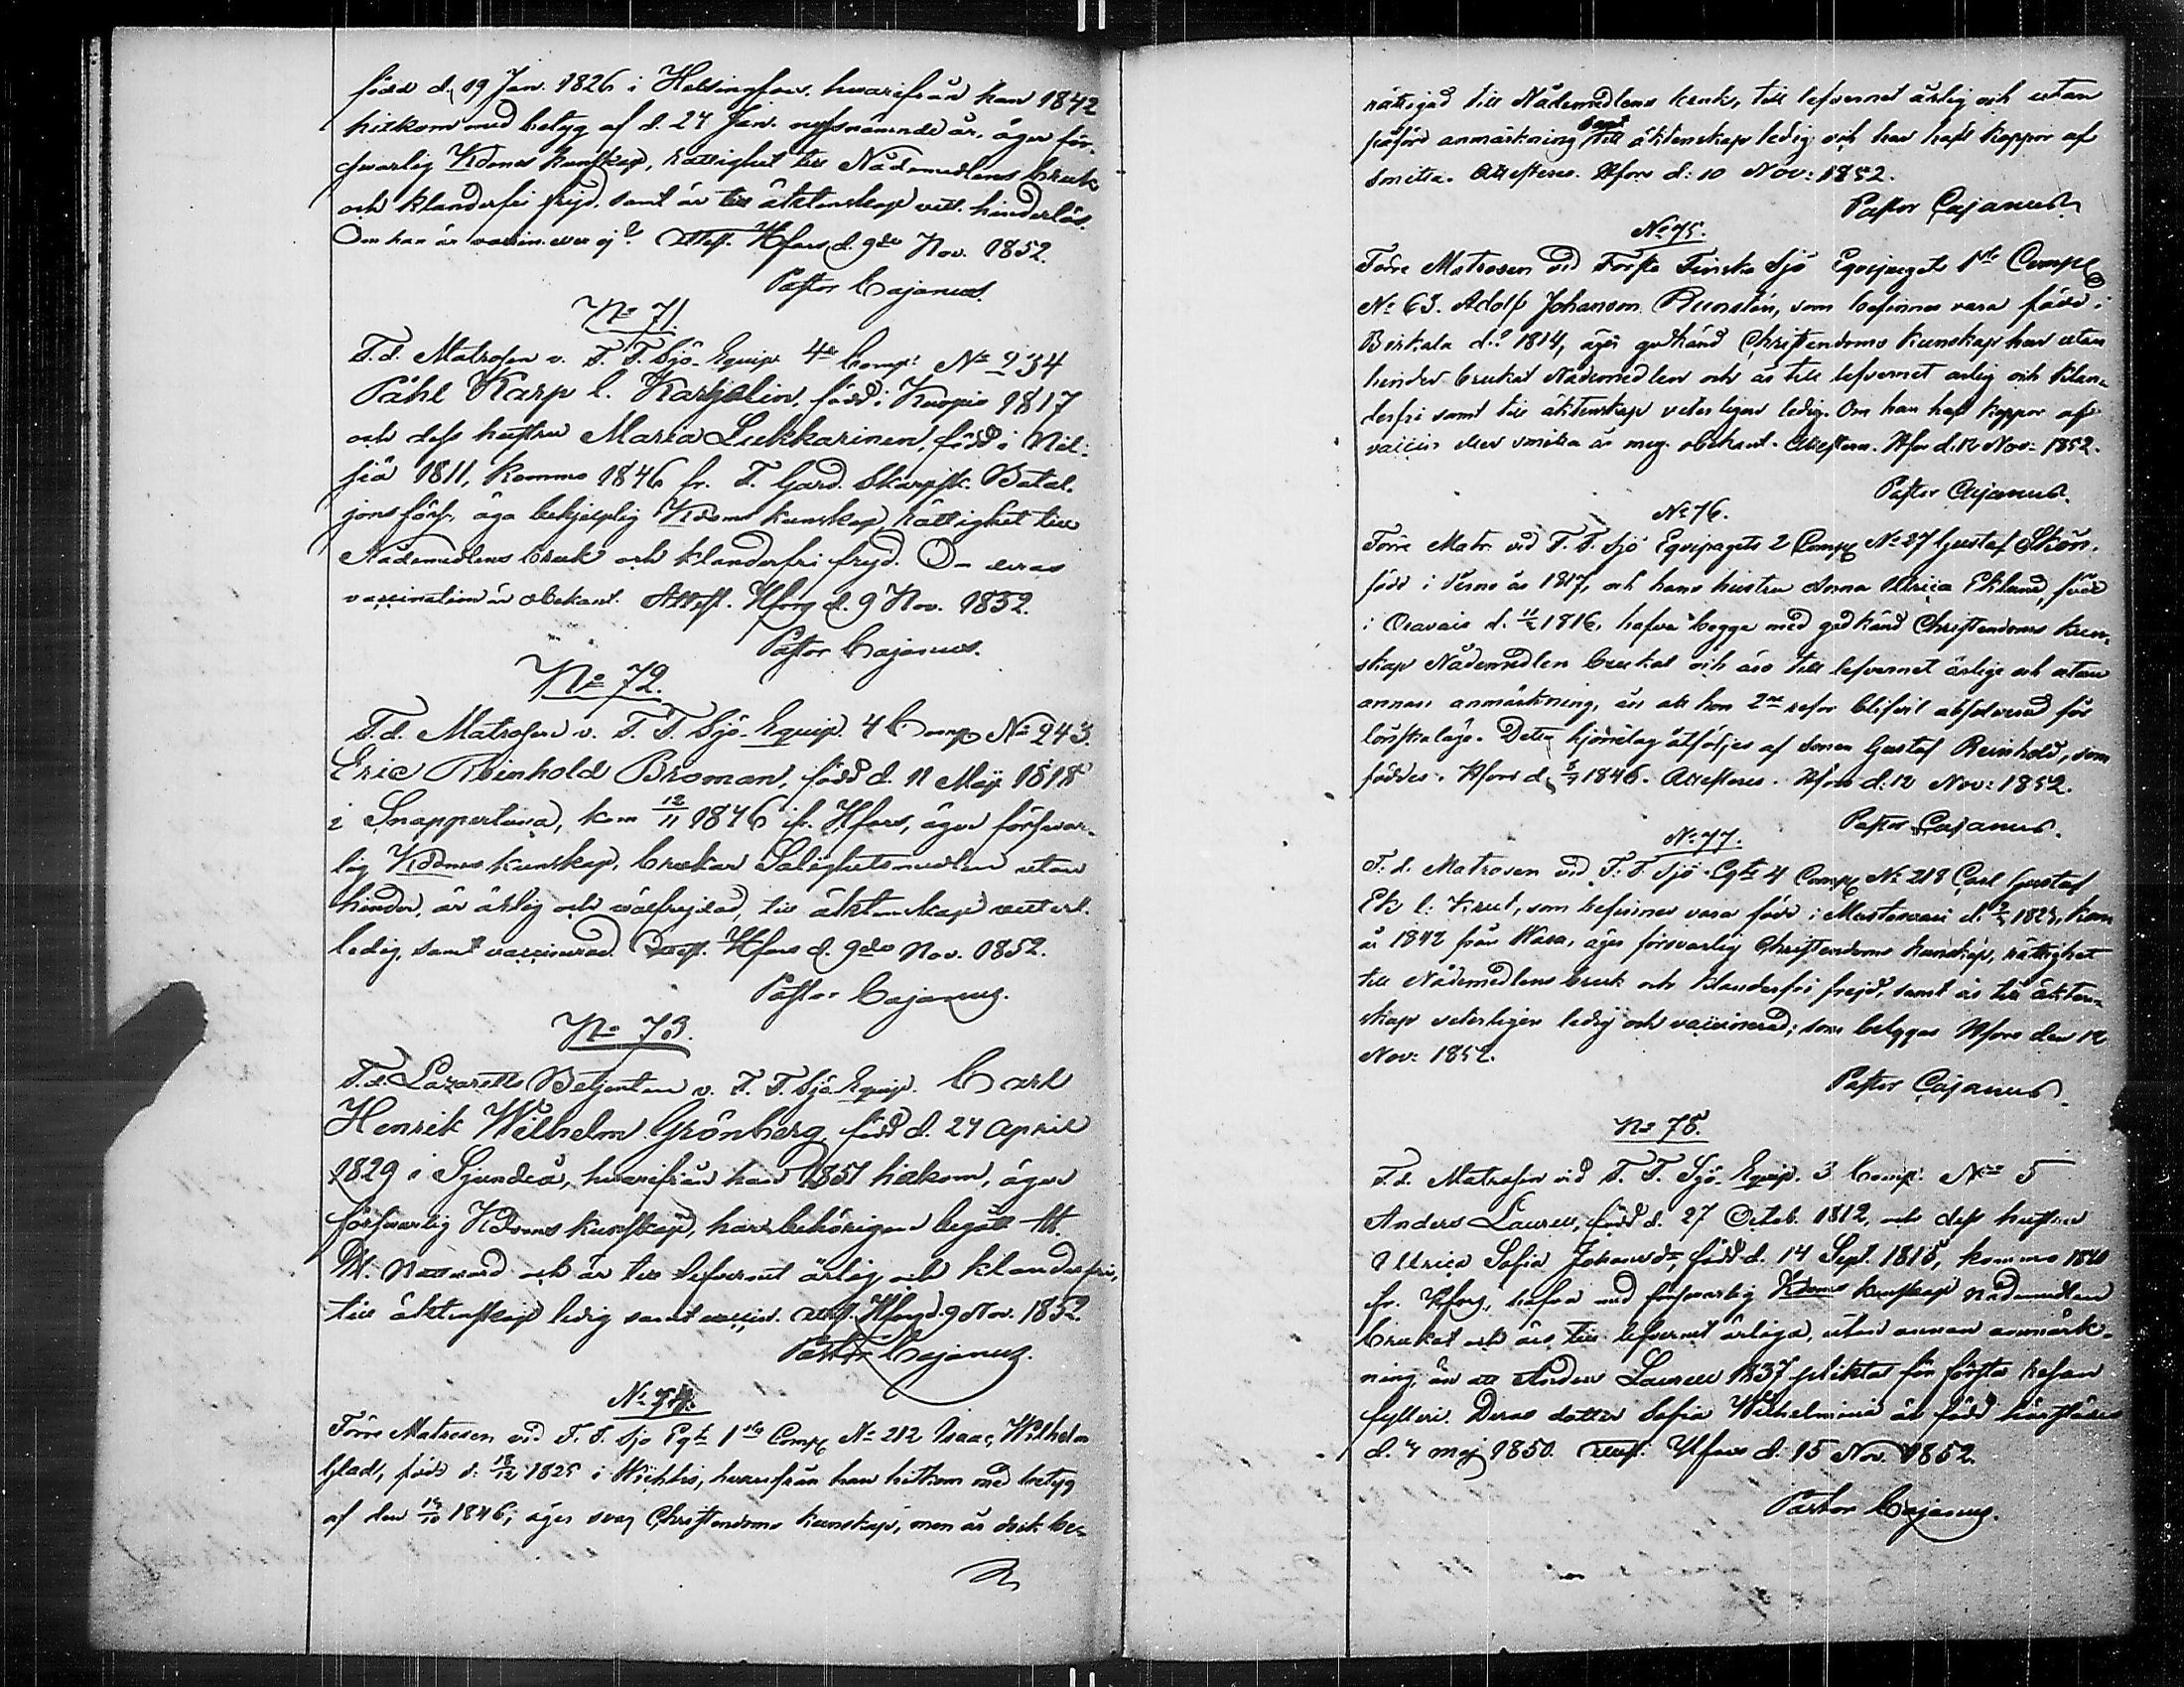 född d. 19 Jan. 1826 i Helsingfors, hvarifrån han 1842
hitkom med betyg af d. 24 Jan. nyssnämnde år, äger för-
svarlig Kdoms kunskap, rättighet till Nådemedlens bruk
och klanderfri frejd, samt är till äktenskap vett. hinderlös.
Om han är vaccin. eller ej? Attest. Hfors d. 9de Nov. 1852.
Pastor Cajanus.
No 71.
F.d. Matrosen v. F. F. Sjö-Equip. 4de Comp. No 234
Påhl Karp l. Karjalin, född i Kuopio 1817
och dess hustru Maria Lukkarinen, född i Nil-
siä 1811, komne 1846 fr. F. Gard. Skarpsk. Batal-
jons förs., äga behjelplig Kdoms kunskap, rättighet till
Nådemedlens bruk och klanderfri frejd. Om deras
vaccination är obekant. Attest. Hfors d. 9 Nov. 1852.
Pastor Cajanus.
No 72.
F.d. Matrosen v. F. F. Sjö-Equip. 4 Comp No 243.
Eric Reinhold Broman, född d. 11 Maj 1818
i Snappertuna, kom 12/11 1846 fr. Hfors, äger försvar-
lig Kdoms kunskap, brukar Salighetsmedlen utan
hinder, är ärlig och välfrejdad, till äktenskap vetterl.
ledig, samt vaccinerad. Attest. Hfors d. 9de Nov. 1852.
Pastor Cajanus.
No 73.
F.d. Lazaretts Betjenten v. F. F. Sjö-Equip. Carl
Henrik Wilhelm Grönberg, född d. 24 April
1829 i Sjundeå, hvarifrån han 1851 hitkom, äger
försvarlig Kdoms kunskap, har behörigen begått H.
H. Nattvard och är till lefvernet ärlig och klanderfri,
till äktenskap ledig samt vaccin. Attest. Hfors d. 9 Nov. 1852.
Pastor Cajanus.
No 74.
Förre Matrosen vid F. F. Sjö Eqts 1sta Comp No 212 Isaac Wilhelm
Glad, född d. 18/12 1825 i Wichtis, hvarifrån han hitkom med betyg
af den 19/10 1846; äger svag Christendoms kunskap, men är dock be-
rättigad till Nådemedlens bruk, till lefvernet ärlig och utan
påförd anmärkning samt till äktenskap ledig och har haft koppor af
smitta. Attesteras. Hfors d: 10 Nov: 1852.
Pastor Cajanus
No 75.
Förre Matrosen vid Första Finska Sjö Equipagets 1sta Comp
No 63. Adolf Johansson Runstén, som befinnes vara född i
Birkala d.o 1814, äger godkänd Christendoms kunskap har utan
hinder brukat Nådemedlen och är till lefvernet ärlig och klan-
derfri samt till äktenskap veterligen ledig. Om han haft koppor af
vaccin eller smitta är mig obekant. Attesteras. Hfors d: 12 Nov: 1852.
Pastor Cajanus.
No 76.
Förre Matr. vid F. F. Sjö Equipagets 2 Comp No 27 Gustaf Skön,
född i Pernå år 1817, och hans hustru Anna Ulrica Eklund, född
i Oravais d. 11/2 1816, hafva begge med godkänd Christendoms kun-
skap Nådemedlen brukat och äro till lefvernet ärlige och utan
annan anmärkning, än att hon 2ne resor blifvit absolverad för
lönskaläge. Detta hjonelag åtföljes af sonen Gustaf Reinhold, som
föddes i Hfors d. 8/7 1846. Attesteras. Hfors d: 12 Nov: 1852.
Pastor Cajanus.
No 77.
F. d. Matrosen vid F. F. Sjö Eqts 4 Comp No 218 Carl Gustaf
Ek l: Krut, som befinnes vara född i Mustasaari d. 2/4 1824, kom
år 1842 från Wasa, äger försvarlig Christendoms kunskap, rättighet
till Nådemedlens bruk och klanderfri frejd, samt är till äkten-
skap veterligen ledig och vaccinerad; som betygas Hfors den 12
Nov: 1852.
Pastor Cajanus
No 78.
F. d. Matrosen vid F. F. Sjö-Equip. 3 Comp: No 5
Anders Laurell, född d. 27 Octob. 1812, och dess hustru
Ulrica Sofia Johansdr, född d. 14 Sept. 1818, komne 1840
fr. Hfors, hafva med försvarlig Kdoms kunskap nådemedlen
brukat och äro till lefvernet ärliga, utan annan anmärk-
ning, än att Anders Laurell 1837 pliktat för första resan
fylleri. Deras dotter Sofia Wilhelmina är född härstädes
d. 4 maj 1850. Attest: Hfors d. 15 Nov. 1852.
Pastor Cajanus.